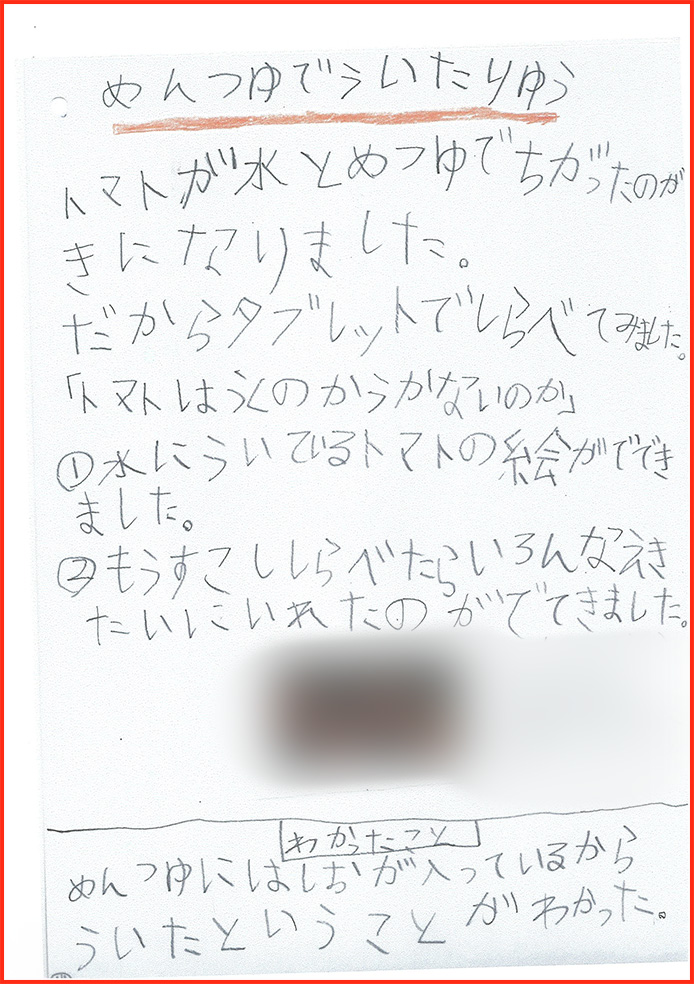 めんつゆでういたりゆう
トマトが水とめつゆでちがったのが
きになりました。
だからタブレットでしらべてみました。
「トマトはうくのかうかないのか」
①水にういているトマトの絵がでてき
ました。
②もうすこししらべたらいろんなえき
たいにいれたのがでてきました。
わかったこと
めんつゆにはしおが入っているから
ういたということがわかった。